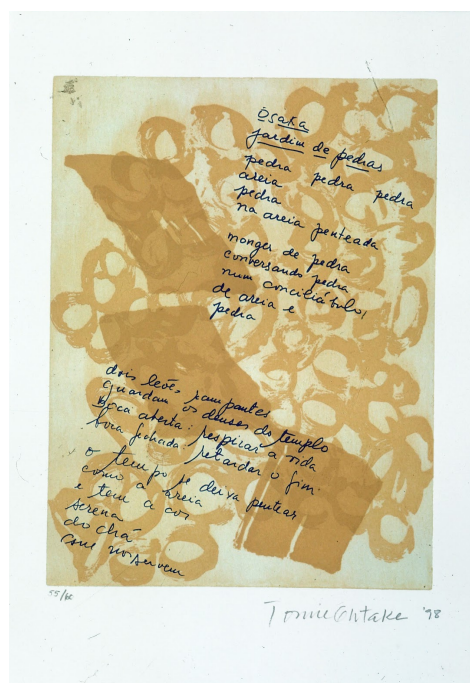 Osaka
jardim de pedras
pedra pedra pedra
areia
pedra
na areia penteada
monges de pedra
conversando pedra
num conciliábulo
de areia e
pedra
dois leões rampantes
guardam os deuses do templo
boca aberta: respirar a vida
boca fechada: retardar o fim
o tempo se deixa pentear
como a areia
e tem a cor
serena
do chá
que nos servem
55/60
Tomie Ohtake '98